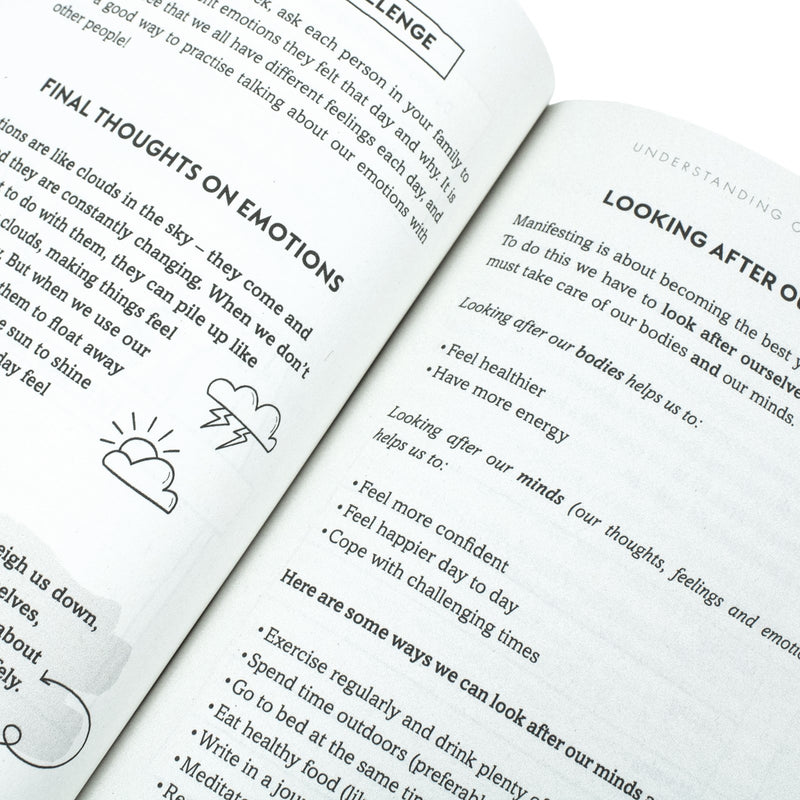 LLENGE
ask each person in your family to
emotions they felt that day and why. It is
that we all have different feelings each day, and
a good way to practise talking about our emotions with
other people!
FINAL THOUGHTS ON EMOTIONS
are like clouds in the sky – they come and
they are constantly changing. When we don't
to do with them, they can pile up like
clouds, making things feel
But when we use our
them to float away
sun to shine
day feel
eigh us down,
elves,
about
ely.
UNDERSTANDING
LOOKING AFTER
Manifesting is about becoming the best
To do this we have to look after ourselve
must take care of our bodies and our minds.
Looking after our bodies helps us to:
• Feel healthier
• Have more energy
Looking after our minds (our thoughts, feelings and emotio
helps us to:
• Feel more confident
• Feel happier day to day
• Cope with challenging times
Here are some ways we can look after our minds
• Exercise regularly and drink plenty
• Spend time outdoors (preferabl
• Go to bed at the same tim
• Eat healthy food (lik
• Write in a jour
• Meditat
• Re